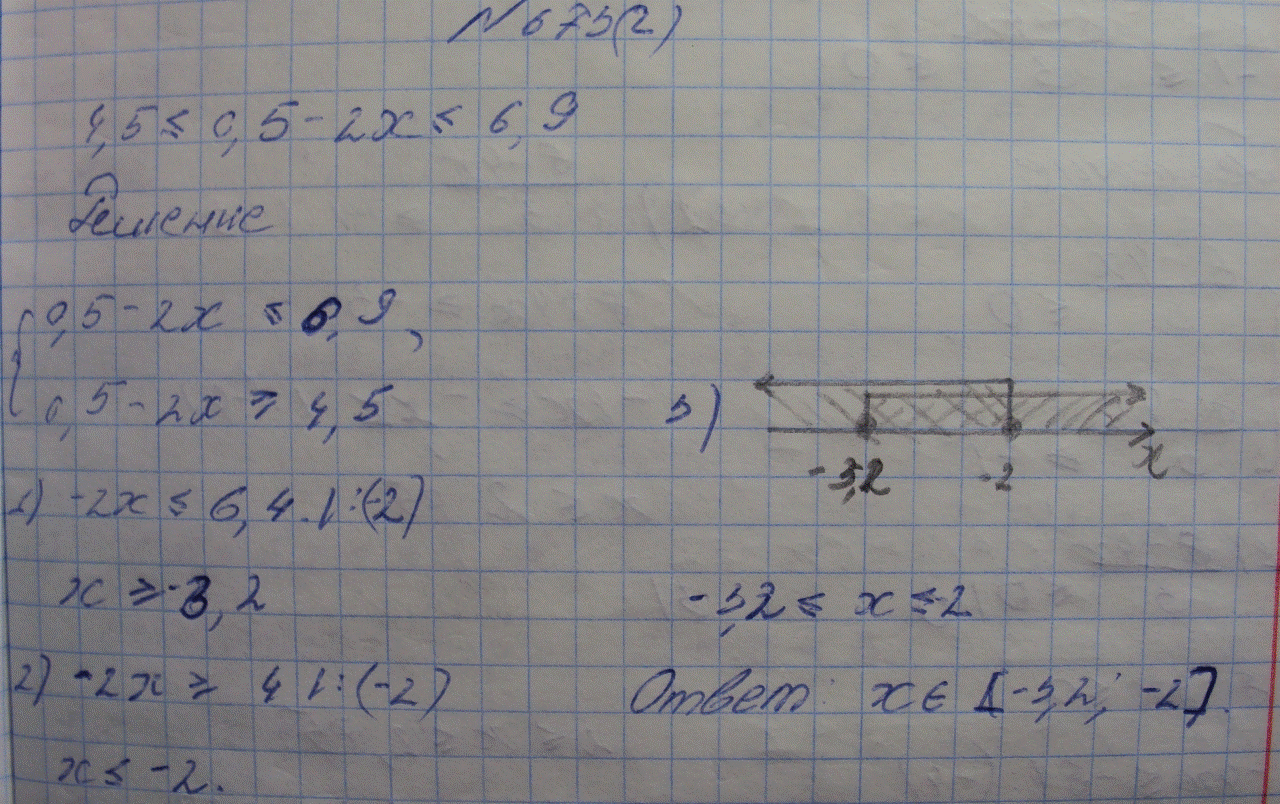 № 673(2)
4,5 ≤ 0,5 - 2x ≤ 6,9
Решение
{ 0,5 - 2x ≤ 6,9,
0,5 - 2x ≥ 4,5
1) -2x ≤ 6,4 |:(-2)
x ≥ -3,2
2) -2x ≥ 4 |:(-2)
x ≤ -2.
3)
-3,2 -2 x
-3,2 ≤ x ≤ -2
Ответ: x ∈ [-3,2; -2].